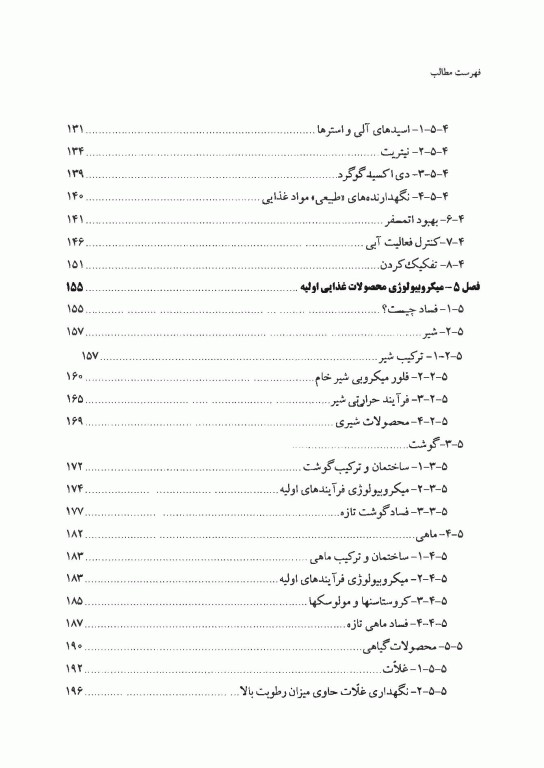 فهرست مطالب
۴-۵-۱- اسیدهای آلی و استرها ۱۳۱
۴-۵-۲- نیتریت ۱۳۴
۴-۵-۳- دی اکسید گوگرد ۱۳۹
۴-۵-۴- نگهدارنده‌های «طبیعی» مواد غذایی ۱۴۰
۴-۶- بهبود اتمسفر ۱۴۱
۴-۷-کنترل فعالیت آبی ۱۴۶
۴-۸- تفکیک کردن ۱۵۱
فصل ۵ - میکروبیولوژی محصولات غذایی اولیه ۱۵۵
۵-۱- فساد چیست؟ ۱۵۵
۵-۲- شیر ۱۵۷
۵-۲-۱- ترکیب شیر ۱۵۷
۵-۲-۲- فلور میکروبی شیر خام ۱۶۰
۵-۲-۳- فرآیند حرارتی شیر ۱۶۵
۵-۲-۴- محصولات شیری ۱۶۹
۵-۳-گوشت
۵-۳-۱- ساختمان و ترکیب گوشت ۱۷۲
۵-۳-۲- میکروبیولوژی فرآیندهای اولیه ۱۷۴
۵-۳-۳- فساد گوشت تازه ۱۷۷
۵-۴- ماهی ۱۸۲
۵-۴-۱- ساختمان و ترکیب ماهی ۱۸۳
۵-۴-۲- میکروبیولوژی فرآیندهای اولیه ۱۸۳
۵-۴-۳-کروستاسنها و مولوسکها ۱۸۵
۵-۴-۴- فساد ماهی تازه ۱۸۷
۵-۵- محصولات گیاهی ۱۹۰
۵-۵-۱- غلاّت ۱۹۲
۵-۵-۲- نگهداری غلاّت حاوی میزان رطوبت بالا ۱۹۶